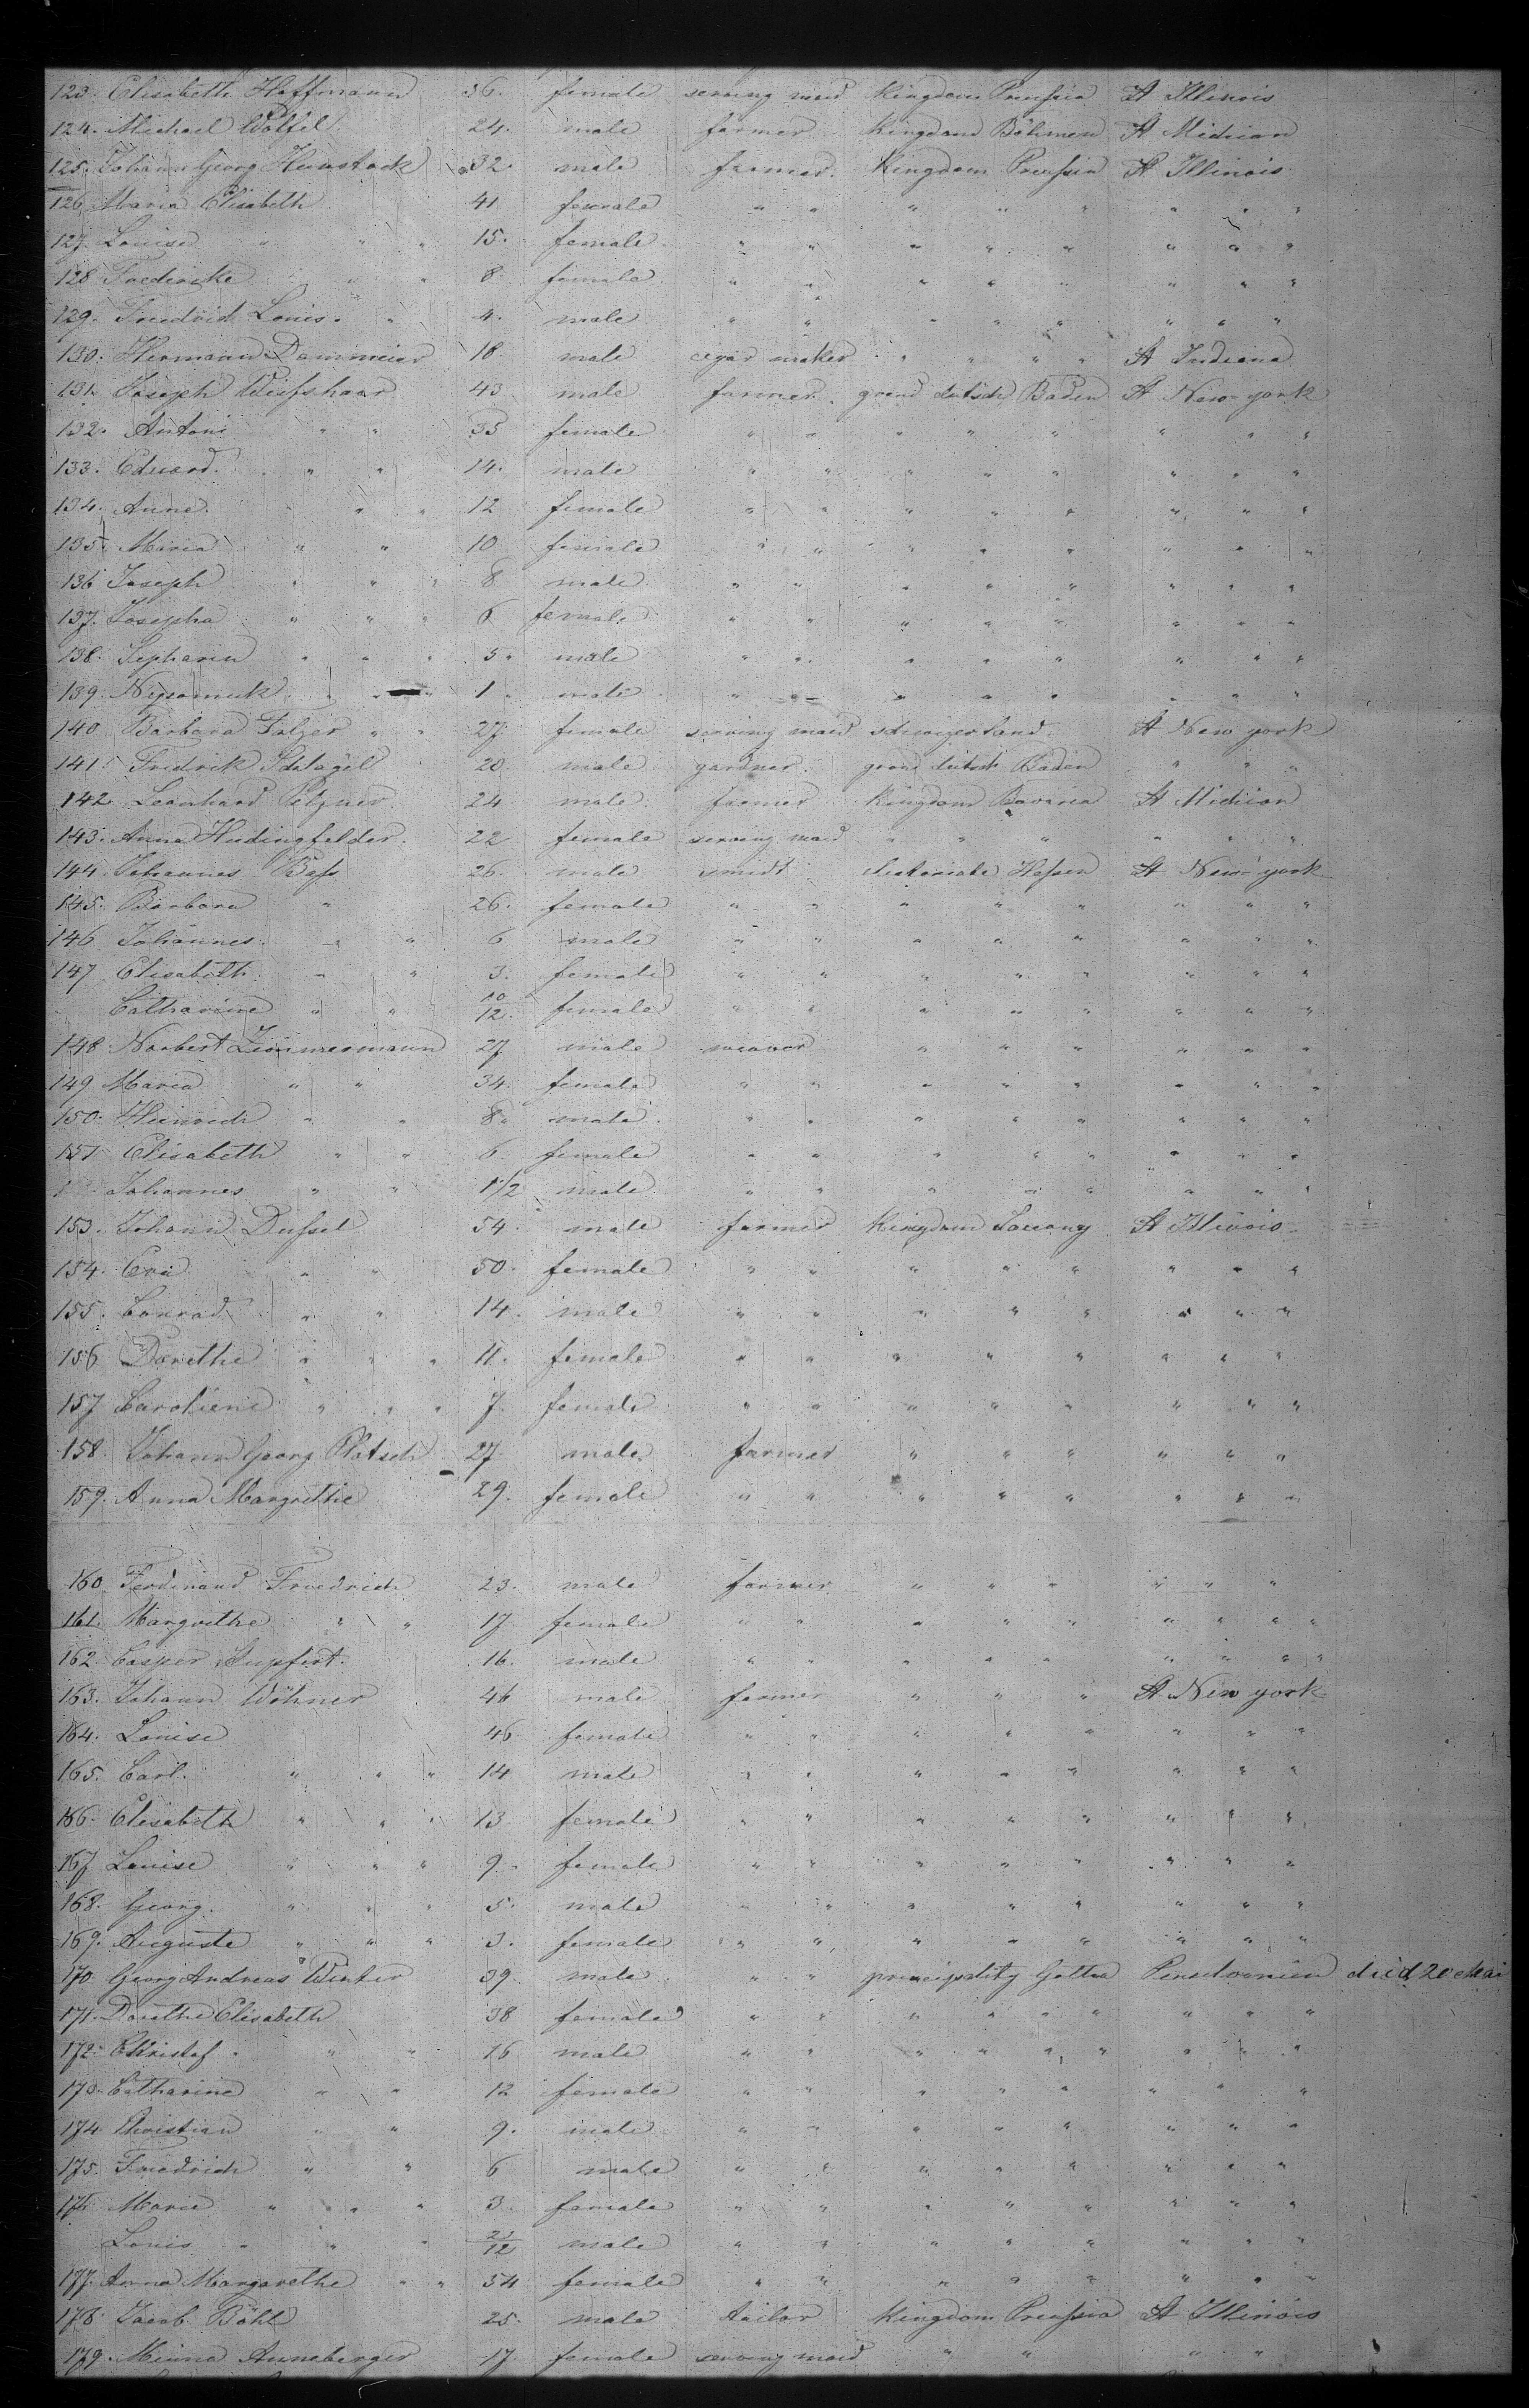 123. Elisabeth Hoffmann 36. female serving maid Kingdom Preußia St Illinois
124. Michael Wölfel 24. male farmer Kingdom Böhmen St Michian
125. Johann Georg Hunstock 32. male farmer. Kingdom Preußia St Illinois
126 Maria Elisabeth 41 female " " " " " " " "
127. Louise " " " 15. female " " " " " " " "
128 Frederike " " 8 female " " " " " " " "
129. Friedrich Louis. " 4. male " " " " " " " "
130. Hermann Dammeier 18 male cigar maker " " " " St Indiana
131. Joseph Wießhaar 43 male farmer. grand dutsch Baden St New-york
132. Antoni " " 35 female " " " " " " " "
133. Eduard. " " 14. male " " " " " " " "
134. Anne. " " " 12 female " " " " " " " "
135. Maria " " 10 female " " " " " " " "
136 Joseph " " " 8 male " " " " " " " "
137. Josepha " " " 6 female " " " " " " " "
138. Sepharin " " " 5. male " " " " " " " "
139. Nepomuk " " 1. male " " " " " " " "
140 Barbara " " 27 female serving maid schweizerland. St New york
141. Fridrik Schlägel 28 male gardner. grand dutsch Baden " " "
142 Leonhard Pelzner 24 male. farmer Kingdom Bavaria St Michian
143. Anna Hudingfelder. 22 female serving maid " " " " " "
144. Johannes Baß 26. male smidt Hessen St New-york
145. Barbara " 26. female " " " " " " " "
146 Johannes. " " 6 male " " " " " " " "
147 Elisabeth " " 3. female " " " " " " " "
Catharine " " 10/12 female " " " " " " " "
148 Norbert Zimmermann 27 male weaver " " " " " "
149 Maria " " 34. female " " " " " " " "
150. Heinrich " " 8. male " " " " " " " "
151 Elisabeth " " 6 female " " " " " " " "
Johannes " " 1/2 male " " " " " " " "
153. Johann Dußel 54. male farmer Kingdom Saccony St Illinois.
154. Eva " " 50. female " " " " " " " "
155. Conrad " " 14. male " " " " " " " "
156 Dorethe " " " 11. female " " " " " " " "
157 Caroliene " " " 7. female " " " " " " " "
158. Johann Georg Plotsch 27 male farmer " " " " " "
159. Anna Margrethe 29. female " " " " " " " "
160 Ferdinand Friedrich 23. male farmer " " " " " "
161. Margrethe " " 17 female " " " " " " " " "
162. Casper 16. male " " " " " " " " "
163. Johann Wöhner 46 male farmer " " " St New york
164. Louise 46 female " " " " " " " "
165. Carl. " " " 14 male " " " " " " " "
166. Elisabeth " " " 13 female " " " " " " " "
167 Louise " " " 9. female " " " " " " " "
168. Georg. " " " 5. male " " " " " " " "
169. Auguste " " " 3. female " " " " " " " "
170 Georg Andreas Winter 39 male " " principality Gotha Penselvanien died 20 Mai
171. Dorethe Elisabeth 38 female " " " " " " " " "
172. Christof. " " 16 male " " " " " " " " "
173. Catharine " " 12 female " " " " " " " "
174 Christian " " 9. male " " " " " " " "
175. Friedrich " " 6 male " " " " " " " "
176 Marie " " " 3. female " " " " " " " "
Louis " " " male " " " " " " " "
177. Anna Margarethe " " 54 female " " " " " " " "
178. Jacob Böhl 25. male tailor Kingdom Preußia St Illinois
179. Minna Anneberger 17. female serving maid " " " "